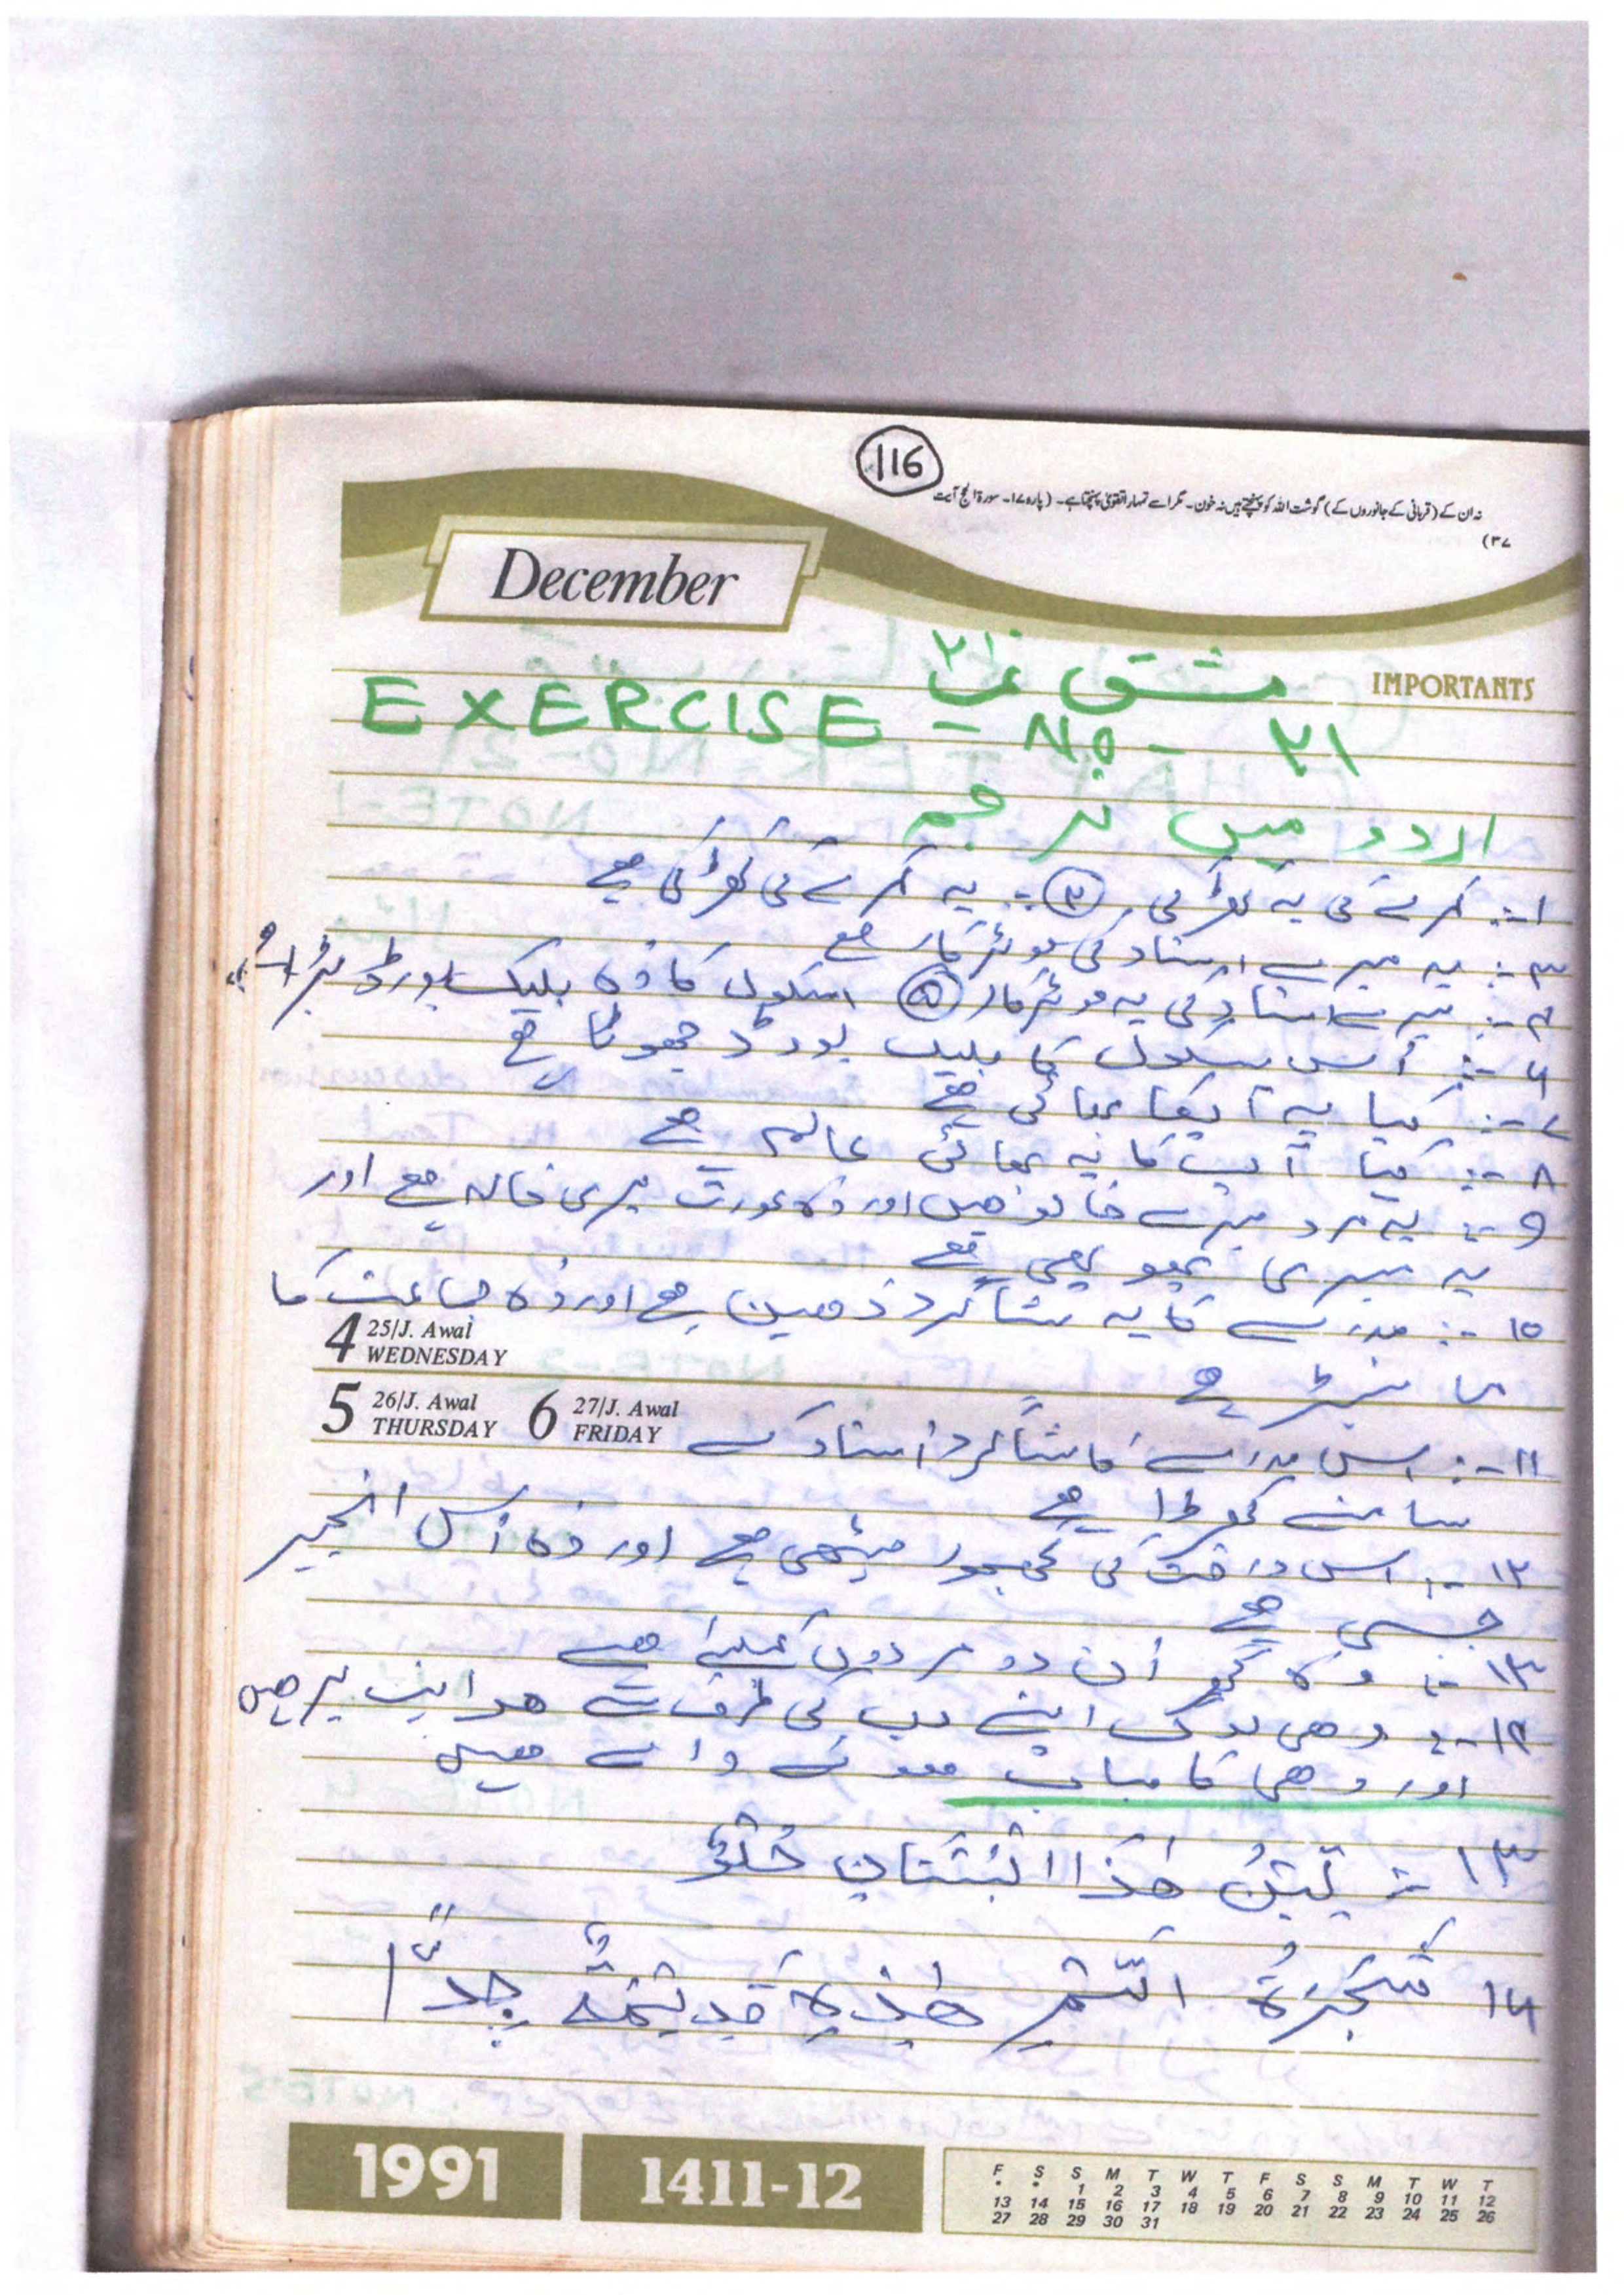 116
نہ ان کے (قربانی کے جانوروں کے) گوشت اللہ کو پہنچتے ہیں نہ خون۔ مگر اسے تمہارا تقویٰ پہنچتا ہے۔ (پارہ ۱۷۔ سورۃ الحج آیت
۳۷)
December
IMPORTANTS
مشق نمبر ۲۱
EXERCISE - No - ۲۱
اردو میں ترجمہ
۱-: کمرے کی یہ کھڑکی ۔ (۲) -: یہ کمرے کی کھڑکی ہے
۳-: یہ میرے استاد کی موٹر کار ہے
۴-: میرے استاد کی یہ موٹر کار (۵) اسکول کا وہ بلیک بورڈ بڑا ہے
۶-: اُس سکول کا بلیک بورڈ چھوٹا ہے
۷-: کیا یہ آپکا بھائی ہے
۸-: کیا آپ کا یہ بھائی عالم ہے
۹-: یہ مرد میرے خالو ہیں اور وہ عورت میری خالہ ہے اور
یہ میری پھوپھی ہے
۱۰-: مدرسے کا یہ شاگرد ذہین ہے اور وہ جماعت کا
مانیٹر ہے
4 25/J. Awal WEDNESDAY
5 26/J. Awal THURSDAY 6 27/J. Awal FRIDAY
۱۱-: اس مدرسے کا شاگرد استاد کے
سامنے کھڑا ہے
۱۲-: اس درخت کی کھجور میٹھی ہے اور وہ اُس انجیر
جیسی ہے
۱۳-: وہ گھر اُن دو مردوں کیلئے ہے
۱۴-: وہی لوگ اپنے رب کی طرف سے ہدایت پر ہیں
اور وہی کامیاب ہونے والے ہیں
۱۳ -: تِيْنُ هٰذَا الْبُسْتَانِ حُلْوٌ
۱۴ شَجَرَةُ التَّمْرِ هٰذِهِ قَدِيْمَةٌ جِدًّا
1991
1411-12
F S S M T W T F S S M T W T
* * 1 2 3 4 5 6 7 8 9 10 11 12
13 14 15 16 17 18 19 20 21 22 23 24 25 26
27 28 29 30 31